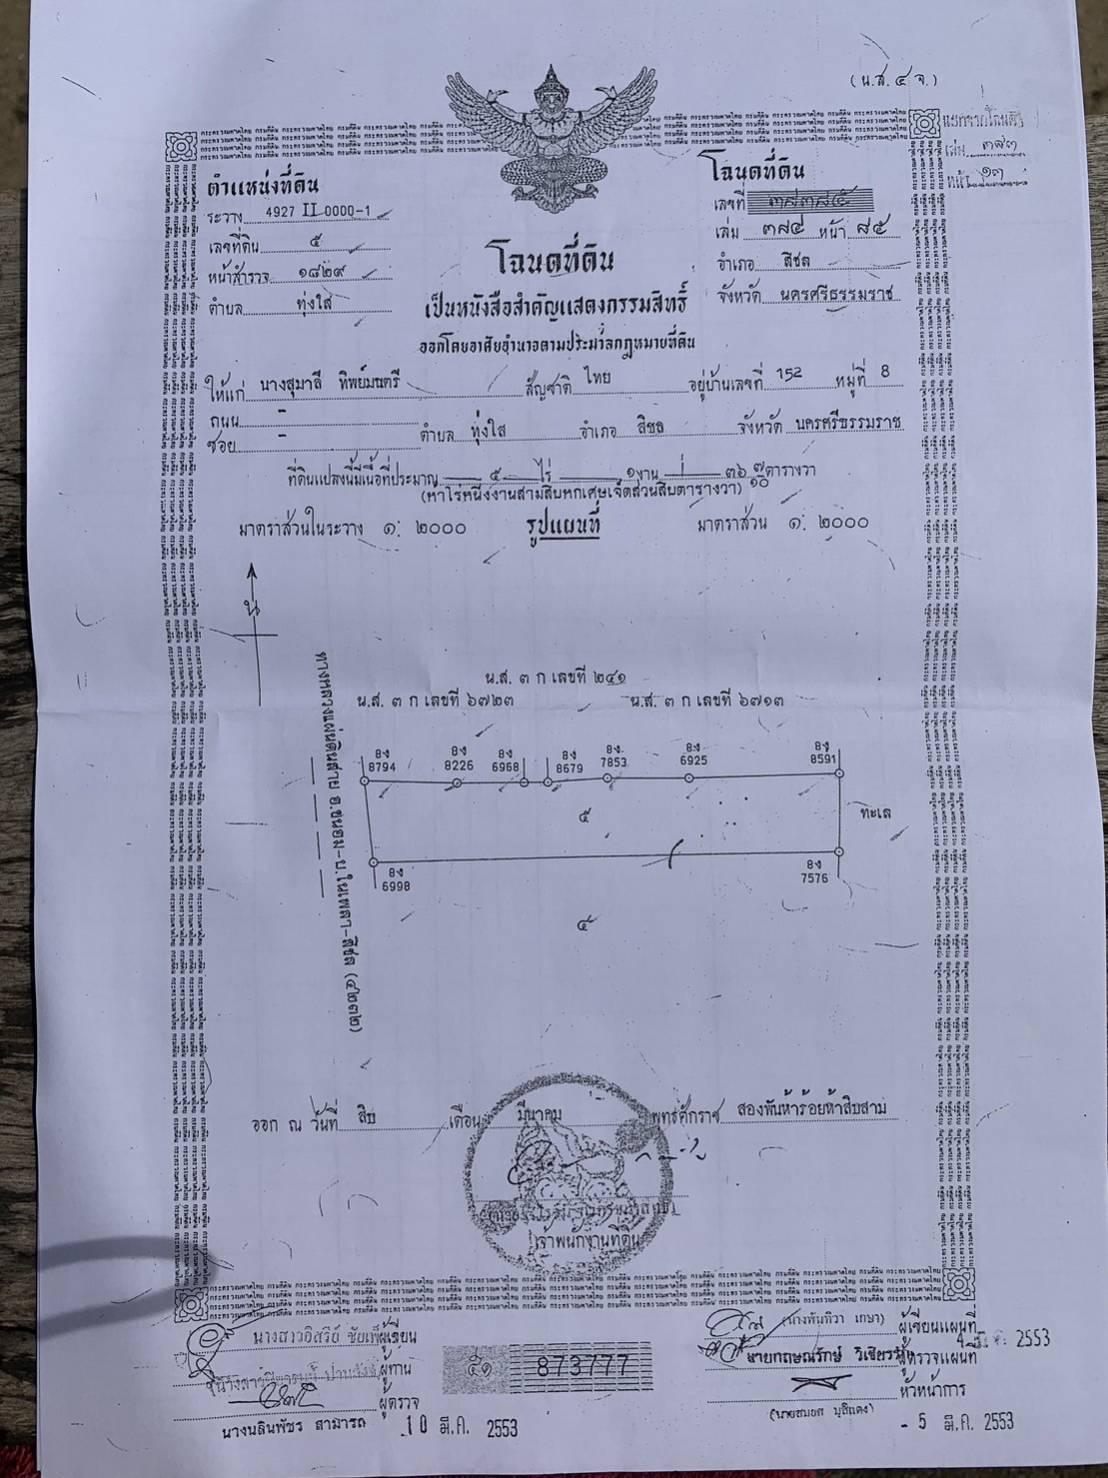 (น.ส. ๔ จ.)
เล่ม ๓๙๓
หน้า ๑๓
ตำแหน่งที่ดิน
ระวาง 4927 II 0000-1
เลขที่ดิน ๕
หน้าสำรวจ ๑๘๒๙
ตำบล ทุ่งใส
โฉนดที่ดิน
เลขที่ ๓๙๓๘๕
เล่ม ๓๙๔ หน้า ๘๕
อำเภอ สิชล
จังหวัด นครศรีธรรมราช
โฉนดที่ดิน
เป็นหนังสือสำคัญแสดงกรรมสิทธิ์
ออกโดยอาศัยอำนาจตามประมวลกฎหมายที่ดิน
ให้แก่ นางสุมาลี ทิพย์มนตรี สัญชาติ ไทย อยู่บ้านเลขที่ 152 หมู่ที่ 8
ถนน -
ซอย - ตำบล ทุ่งใส อำเภอ สิชล จังหวัด นครศรีธรรมราช
ที่ดินแปลงนี้มีเนื้อที่ประมาณ ๕ ไร่ ๑ งาน ๓๖ ๗/๑๐ ตารางวา
(ห้าไร่หนึ่งงานสามสิบหกเศษเจ็ดส่วนสิบตารางวา)
มาตราส่วนในระวาง ๑: ๒๐๐๐ รูปแผนที่ มาตราส่วน ๑: ๒๐๐๐
น
น.ส. ๓ ก เลขที่ ๒๔๑
น.ส. ๓ ก เลขที่ ๖๗๒๓ น.ส. ๓ ก เลขที่ ๖๗๑๓
ทางหลวงแผ่นดินสาย อ.ขนอม-บ.ในเพลา-สิชล (๔๒๓๒)
8ง 8794
8ง 8226
8ง 6968
8ง 8679
8ง 7853
8ง 6925
8ง 8591
๕
ทะเล
8ง 6998
8ง 7576
๔
ออก ณ วันที่ สิบ เดือน มีนาคม พุทธศักราช สองพันห้าร้อยห้าสิบสาม
เจ้าพนักงานที่ดิน
ผู้เขียน
ผู้ทาน
ผู้ตรวจ
นางนลินพัชร สามารถ 10 มี.ค. 2553
๕๑ 873777
ผู้เขียนแผนที่
2553
นายกฤษณรักษ์ ผู้ตรวจแผนที่
หัวหน้าการ
- 5 มี.ค. 2553